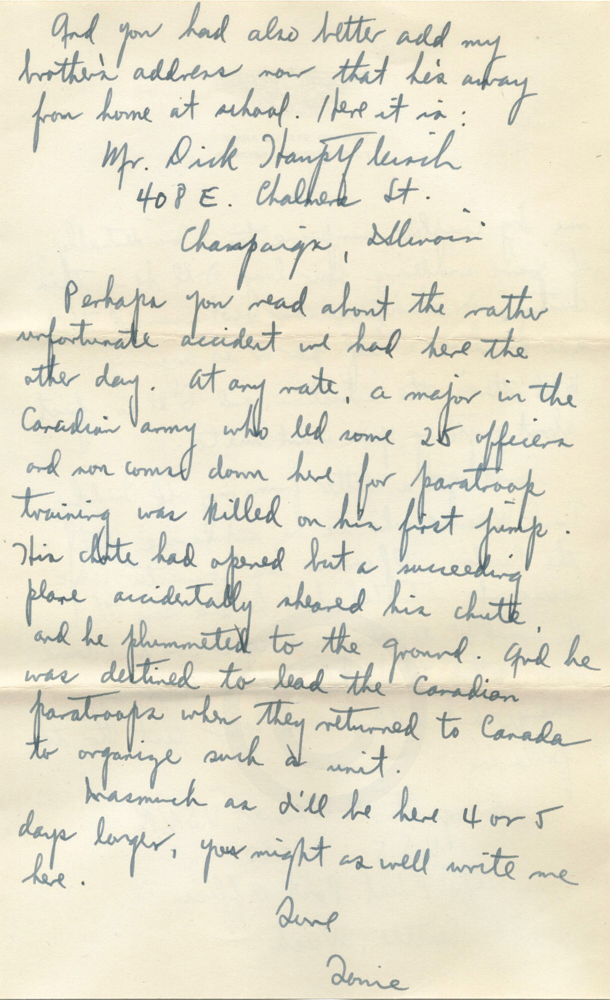 And you had also better add my
brother's address now that he's away
from home at school. Here it is:
Mr. Dick Hauptfleisch
408 E. Chalmers St.
Champaign, Illinois
Perhaps you read about the rather
unfortunate accident we had here the
other day. At any rate, a major in the
Canadian army who led some 25 officers
and non coms down here for paratroop
training was killed on his first jump.
His chute had opened but a succeeding
plane accidentally sheared his chute
and he plummeted to the ground. And he
was destined to lead the Canadian
paratroops when they returned to Canada
to organize such a unit.
Inasmuch as I'll be here 4 or 5
days longer, you might as well write me
here.
Love